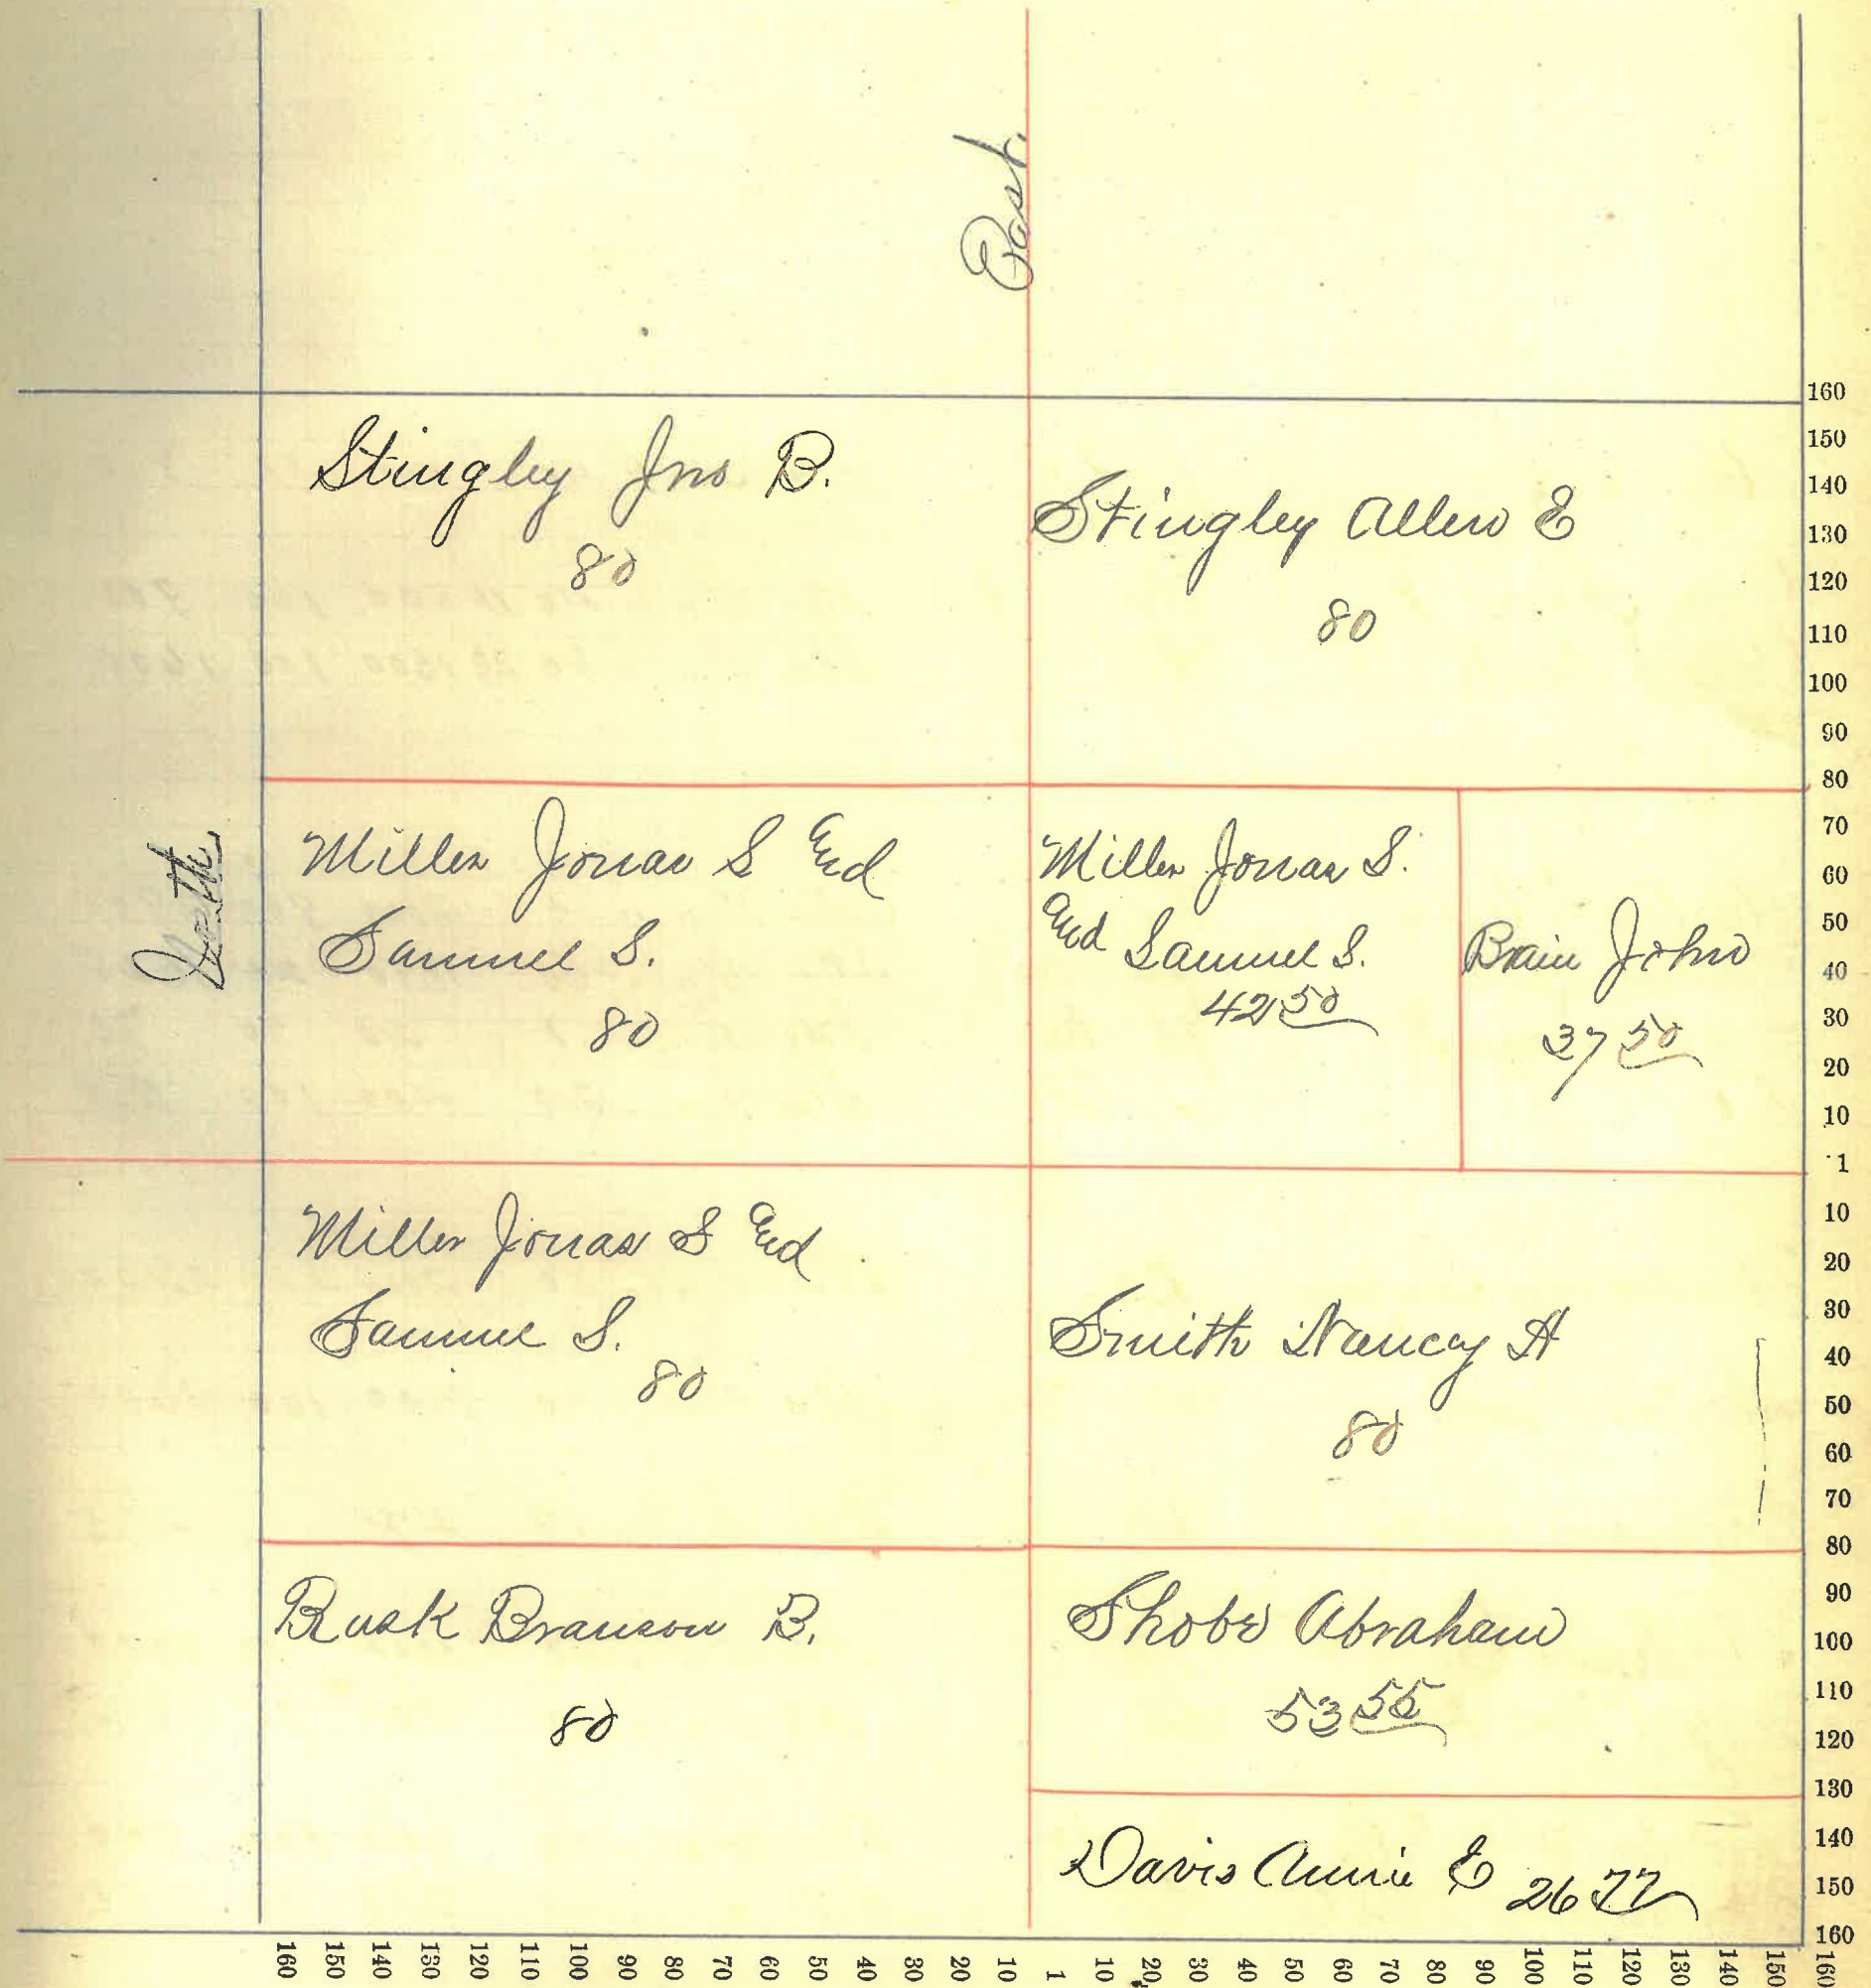 East.
Stingley Jno B.
80
Stingley Allen E
80
Miller Jonas S and
Samuel S.
80
Miller Jonas S.
and Samuel S.
42 50
Brain John
37 50
Miller Jonas S and
Samuel S.
80
Smith Nancy A
80
Rusk Branson B.
80
Shobe Abraham
53 55
Davis Annie E 26 77
160
150
140
130
120
110
100
90
80
70
60
50
40
30
20
10
1
10
20
30
40
50
60
70
80
90
100
110
120
130
140
150
160
160 150 140 130 120 110 100 90 80 70 60 50 40 30 20 10 1 10 20 30 40 50 60 70 80 90 100 110 120 130 140 150 160